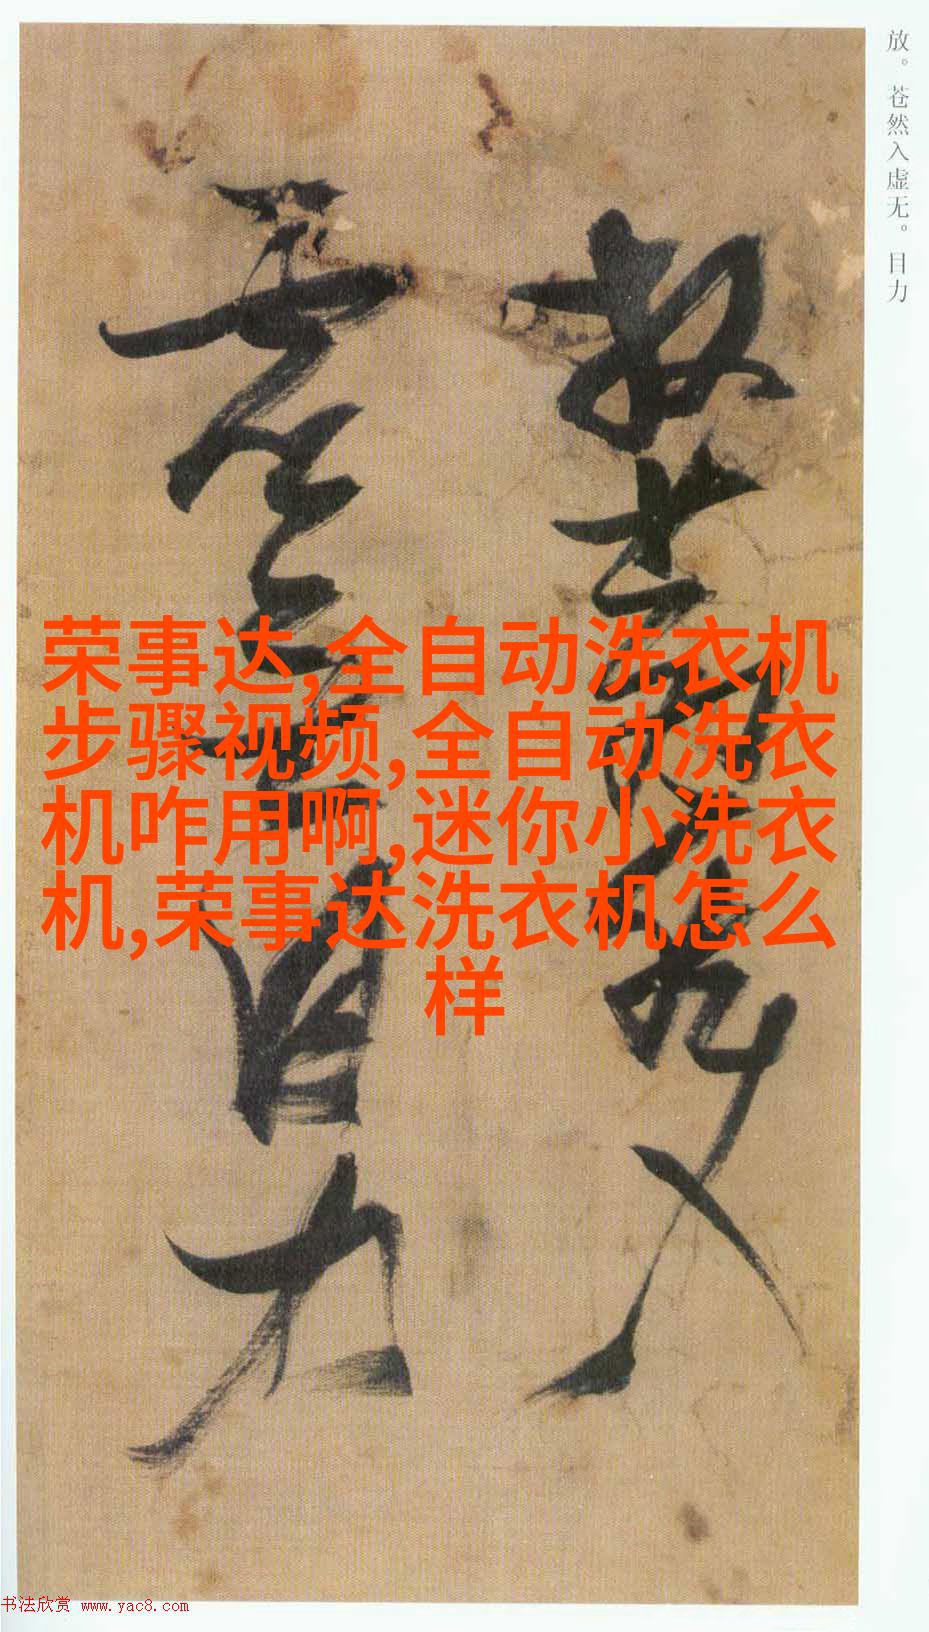 放。苍然入虚无。目力
放苍然入
虚无目力
荣事达,全自动洗衣机
步骤视频,全自动洗衣
机咋用啊,迷你小洗衣
机,荣事达洗衣机怎么
样
书法欣赏 www.yac8.com